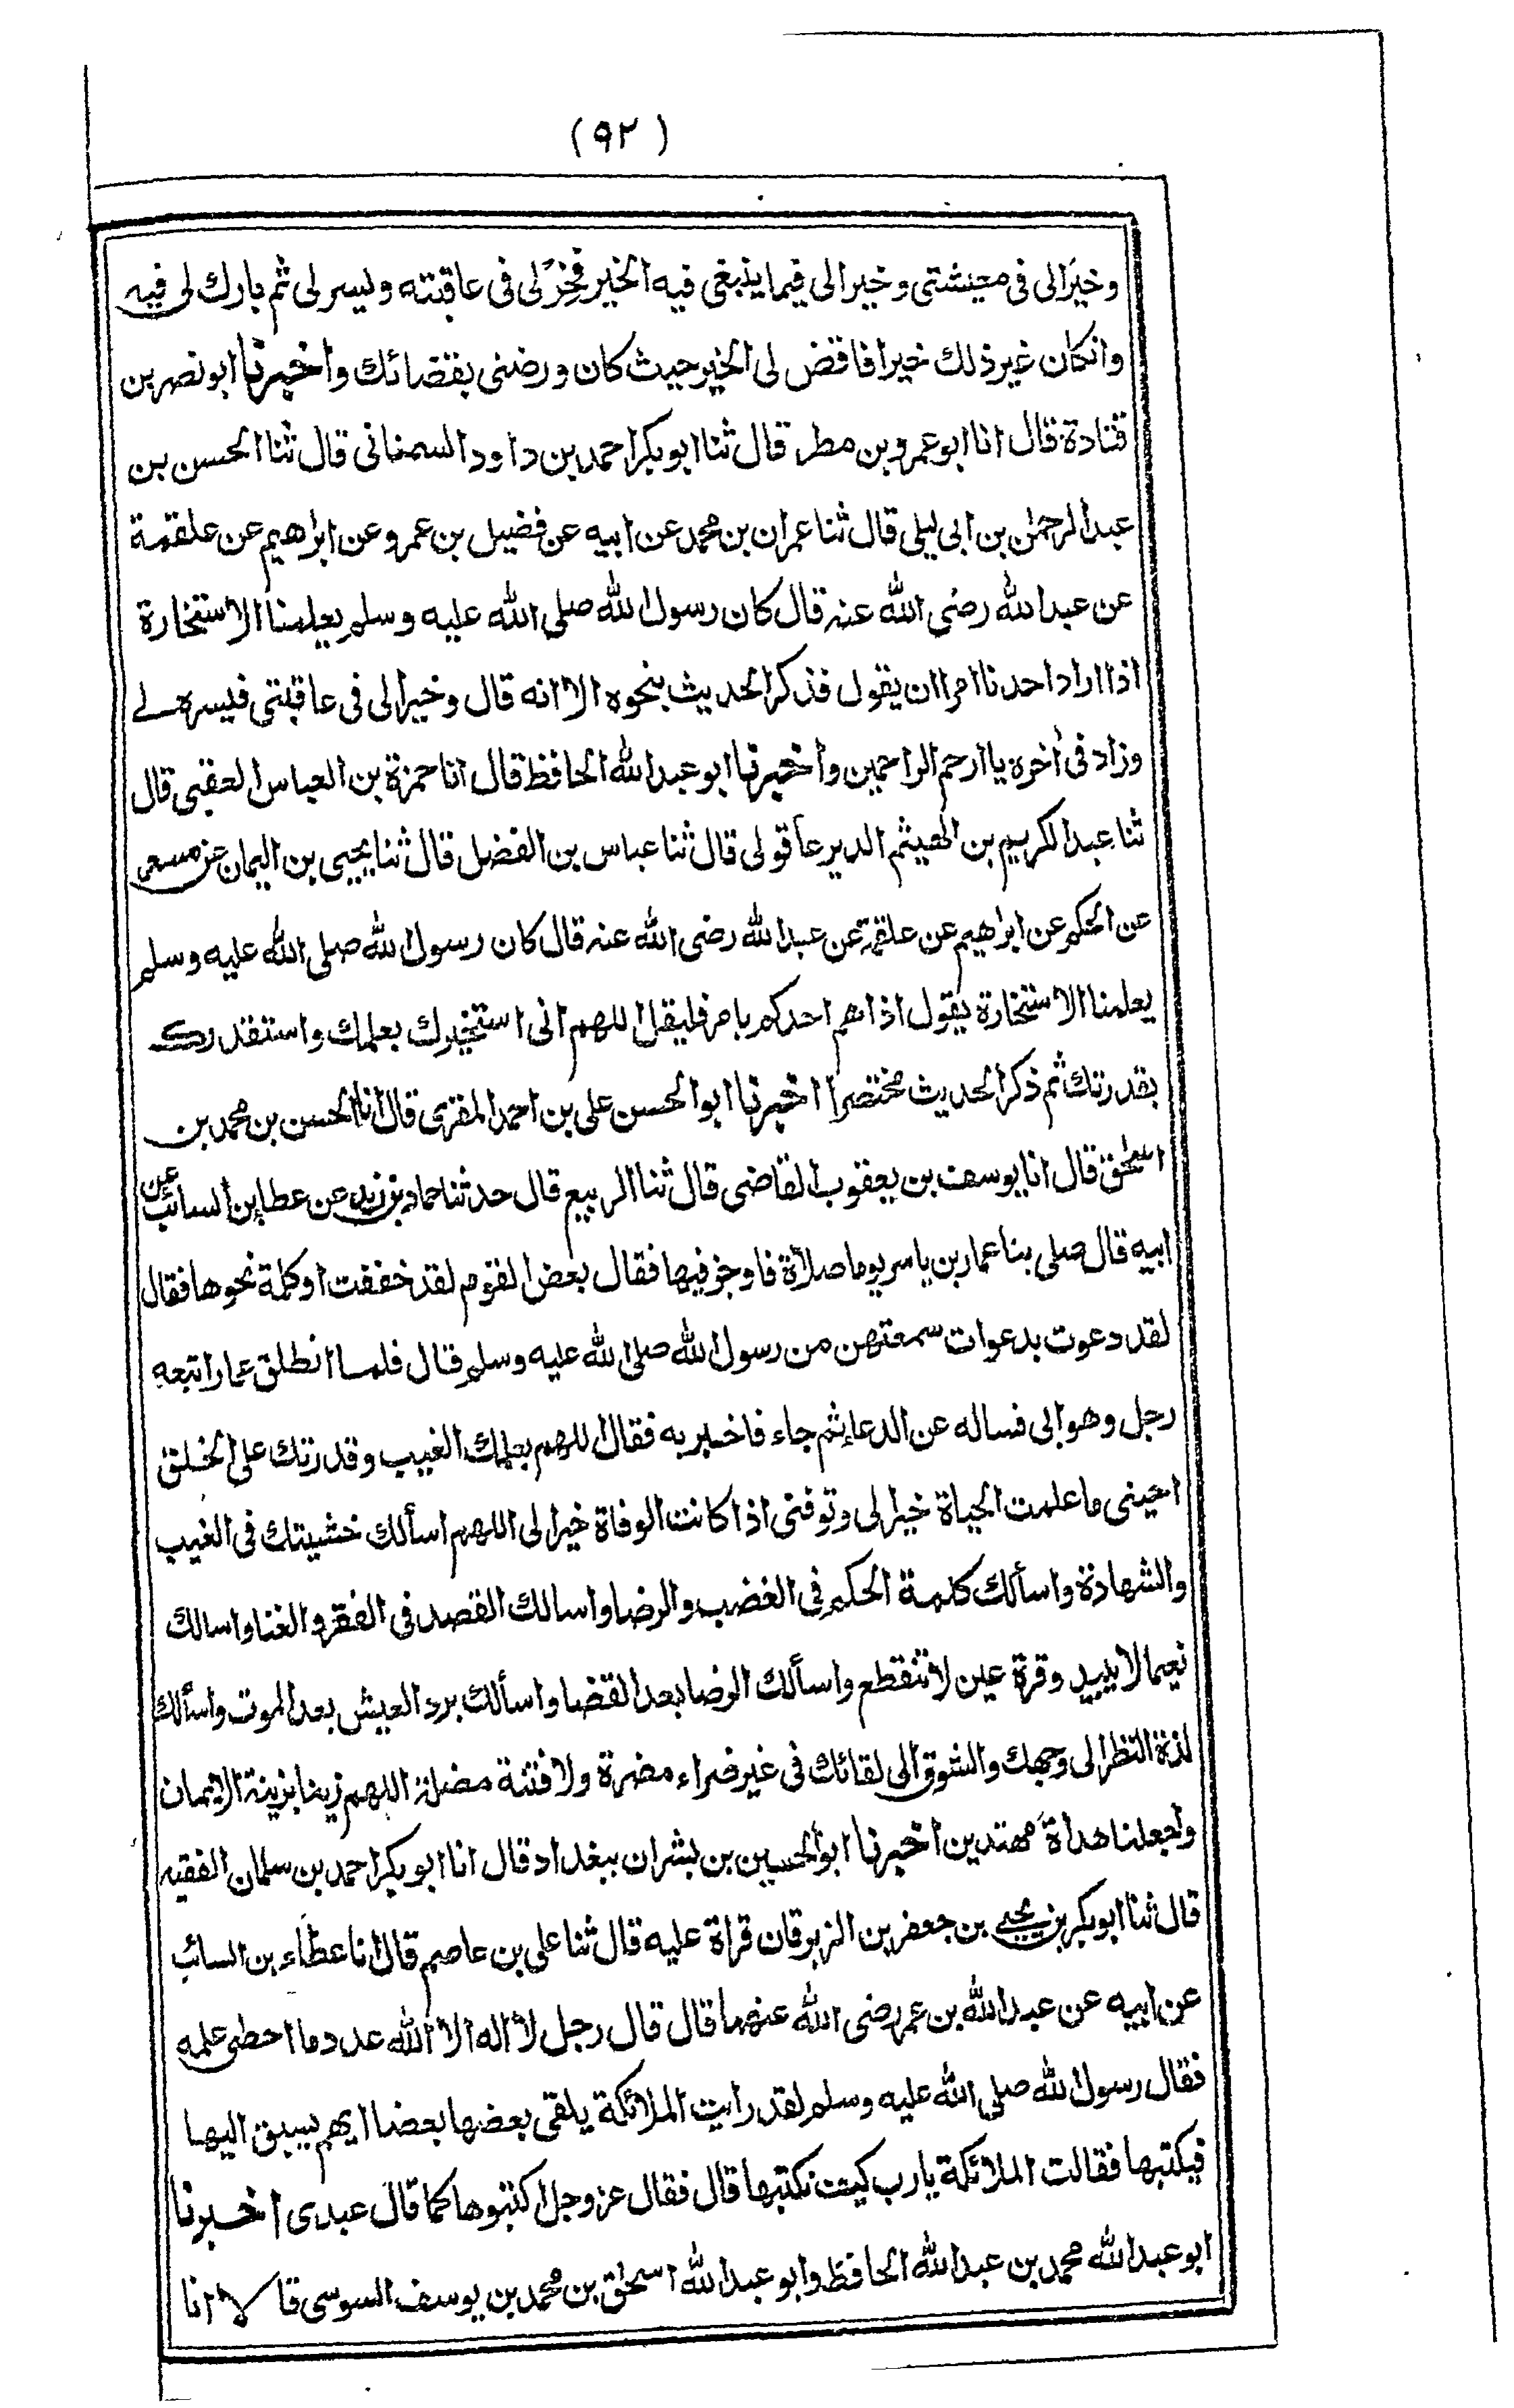 (٩٢)
وخيرا لى فى معيشتى وخيرا لى فيما ينبغى فيه الخير فخِرْلى فى عاقبته ويسر لى ثم بارك لى فيه
وانكان غير ذلك خيرا فاقض لى الخير حيث كان ورضنى بقضائك واخبرنا ابو نصر بن
قتادة قال انا ابو عمرو بن مطر قال ثنا ابو بكر احمد بن داود السمنانى قال ثنا الحسن بن
عبد الرحمٰن بن ابى ليلى قال ثنا عمران بن محمد عن ابيه عن فضيل بن عمرو عن ابراهيم عن علقمة
عن عبد الله رضى الله عنه قال كان رسول الله صلى الله عليه وسلم يعلمنا الاستخارة
اذا اراد احدنا امرا ان يقول فذكر الحديث بنحوه الا انه قال وخيرا لى فى عاقبتى فيسره لے
وزاد فى أخره يا ارحم الراحمين وأخبرنا ابو عبد الله الحافظ قال انا حمزة بن العباس العقبى قال
ثنا عبد الكريم بن الهيثم الدير عاقولى قال ثنا عباس بن الفضل قال ثنا يحيى بن اليمان عن مسعر
عن الحكم عن ابراهيم عن علقمة عن عبد الله رضى الله عنه قال كان رسول الله صلى الله عليه وسلم
يعلمنا الاستخارة يقول اذا هم احدكم بامر فليقل اللهم انى استخيرك بعلمك واستقدرك
بقدرتك ثم ذكر الحديث مختصرا اخبرنا ابو الحسن على بن احمد المقرى قال انا الحسن بن محمد بن
اسحٰق قال انا يوسف بن يعقوب القاضى قال ثنا ابو الربيع قال حدثنا حماد بن زيد عن عطا بن السائب عن
ابيه قال صلى بنا عمار بن ياسر يوما صلاة فاوجز فيها فقال بعض القوم لقد خففت او كلمة نحوها فقال
لقد دعوت بدعوات سمعتهن من رسول الله صلى الله عليه وسلم قال فلما انطلق عمار اتبعه
رجل وهو ابى فساله عن الدعاء ثم جاء فاخبر به فقال اللهم بعلمك الغيب وقدرتك على الخلق
احينى ما علمت الحياة خيرا لى وتوفنى اذا كانت الوفاة خيرا لى اللهم اسألك خشيتك فى الغيب
والشهادة واسألك كلمة الحكم فى الغضب والرضا واسالك القصد فى الفقر والغنا واسالك
نعيما لا يبيد وقرة عين لا تنقطع واسألك الرضا بعد القضا واسألك برد العيش بعد الموت واسألك
لذة النظر الى وجهك والشوق الى لقائك فى غير ضراء مضرة ولا فتنة مضلة اللهم زينا بزينة الايمان
واجعلنا هداة مهتدين اخبرنا ابو الحسين بن بشران ببغداد قال انا ابو بكر احمد بن سلمان الفقيه
قال ثنا ابو بكر بن يحيے بن جعفر بن الزبرقان قراة عليه قال ثنا على بن عاصم قال انا عطاء بن السائب
عن ابيه عن عبد الله بن عمر رضى الله عنهما قال قال رجل لا اله الا الله عدد ما احطى علمه
فقال رسول الله صلى الله عليه وسلم لقد رايت الملائكة يلقى بعضها بعضا ايهم يسبق اليها
فيكتبها فقالت الملائكة يا رب كيف نكتبها قال فقال عز وجل اكتبوها كما قال عبدى اخبرنا
ابو عبد الله محمد بن عبد الله الحافظ وابو عبد الله اسحٰق بن محمد بن يوسف السوسى قالا انا